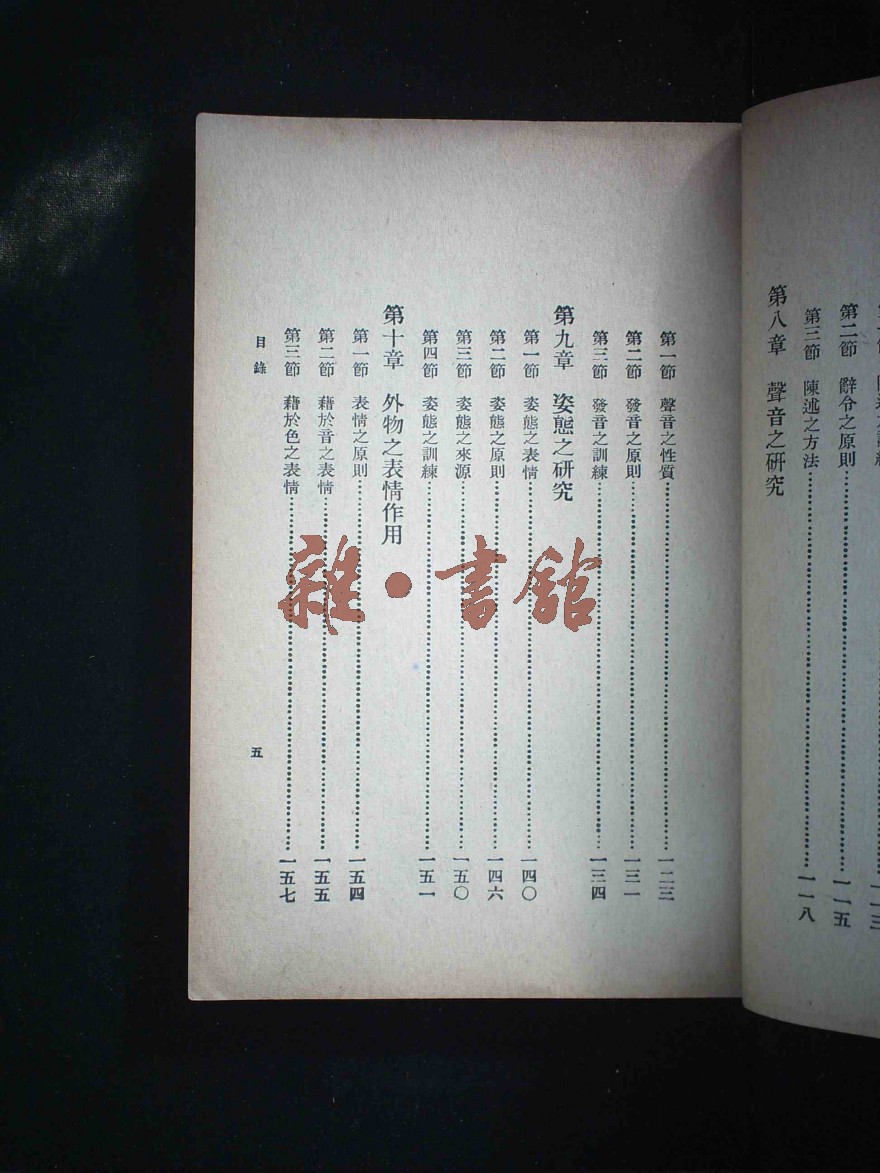 第二節 辭令之原則 一一五
第三節 陳述之方法 一一八
第八章 聲音之研究
第一節 聲音之性質 一二三
第二節 發音之原則 一三一
第三節 發音之訓練 一三四
第九章 姿態之研究
第一節 姿態之表情 一四〇
第二節 姿態之原則 一四六
第三節 姿態之來源 一五〇
第四節 姿態之訓練 一五一
第十章 外物之表情作用
第一節 表情之原則 一五四
第二節 藉於音之表情 一五五
第三節 藉於色之表情 一五七
目錄
五
雜·書館